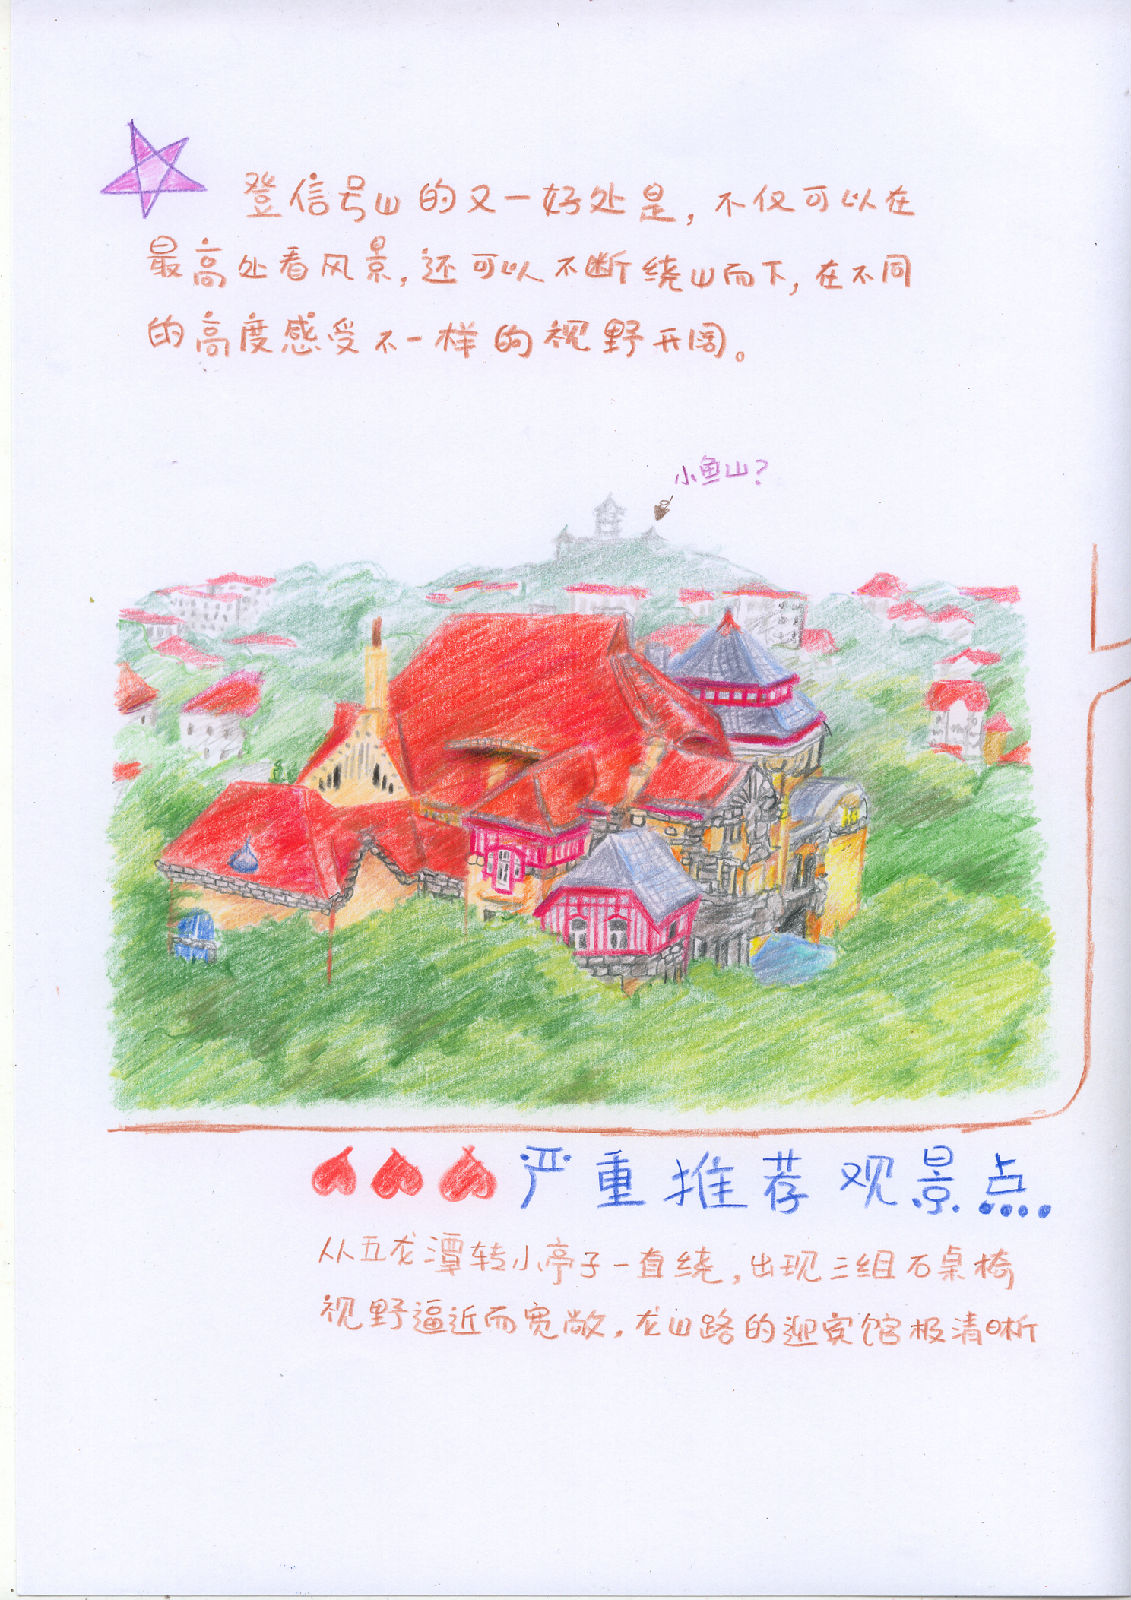 登信号山的又一好处是，不仅可以在
最高处看风景，还可以不断绕山而下，在不同
的高度感受不一样的视野开阔。
小鱼山？
严重推荐观景点
从五龙潭转小亭子一直绕，出现三组石桌椅
视野逼近而宽敞，龙山路的迎宾馆极清晰